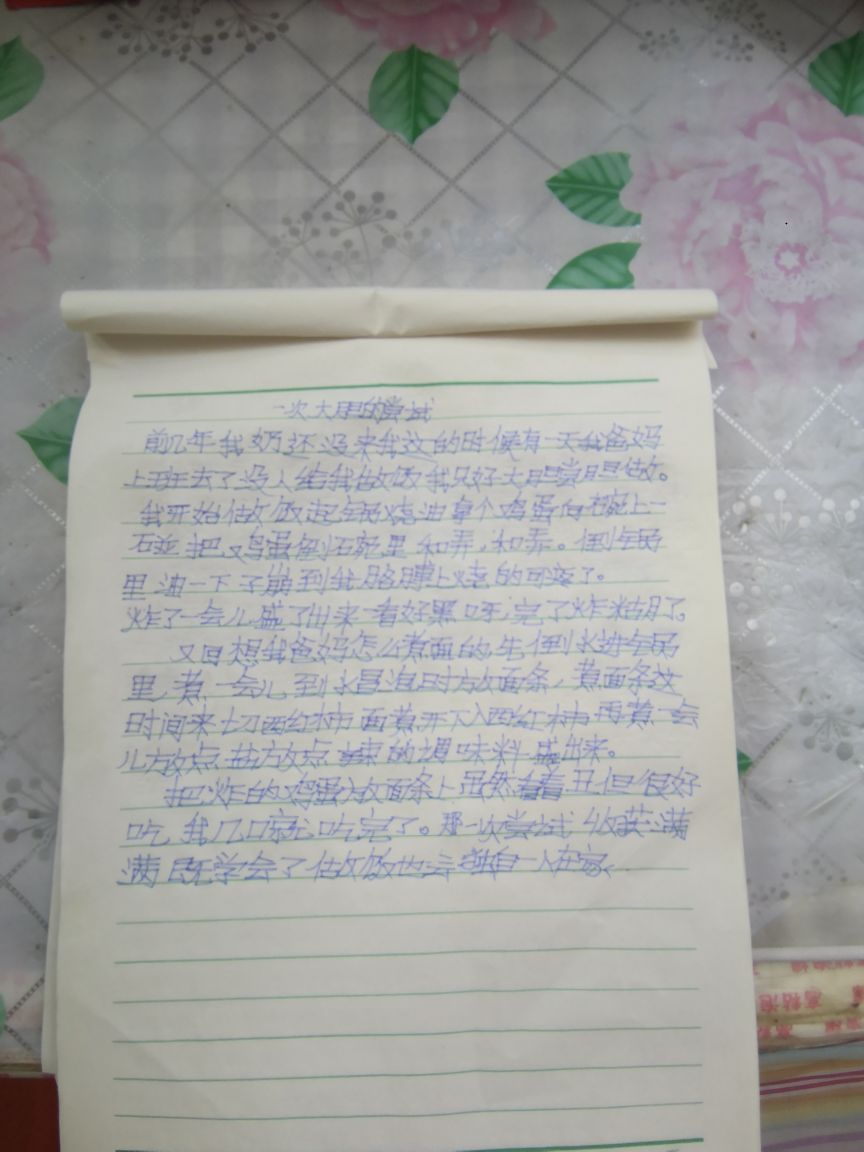 一次大胆的尝试
前几年我奶还没来我这的时候有一天我爸妈
上班去了没人给我做饭我只好大胆尝试做。
我开始做饭起锅烧油拿个鸡蛋向碗上一
碰把鸡蛋倒碗里和弄,和弄。倒锅
里油一下子崩到我胳膊上烧的可疼了。
炸了一会儿盛了出来一看好黑呀,完了炸糊了。
又回想我爸妈怎么煮面的,先倒水进锅
里,煮一会儿到水冒泡时放面条,煮面条这
时间来切西红柿面煮开下入西红柿再煮一会
儿放点盐放点辣的调味料盛出来。
把炸的鸡蛋放面条上虽然看着丑但很好
吃,我几口就吃完了。那一次尝试收获满
满既学会了做饭也会独自一人在家